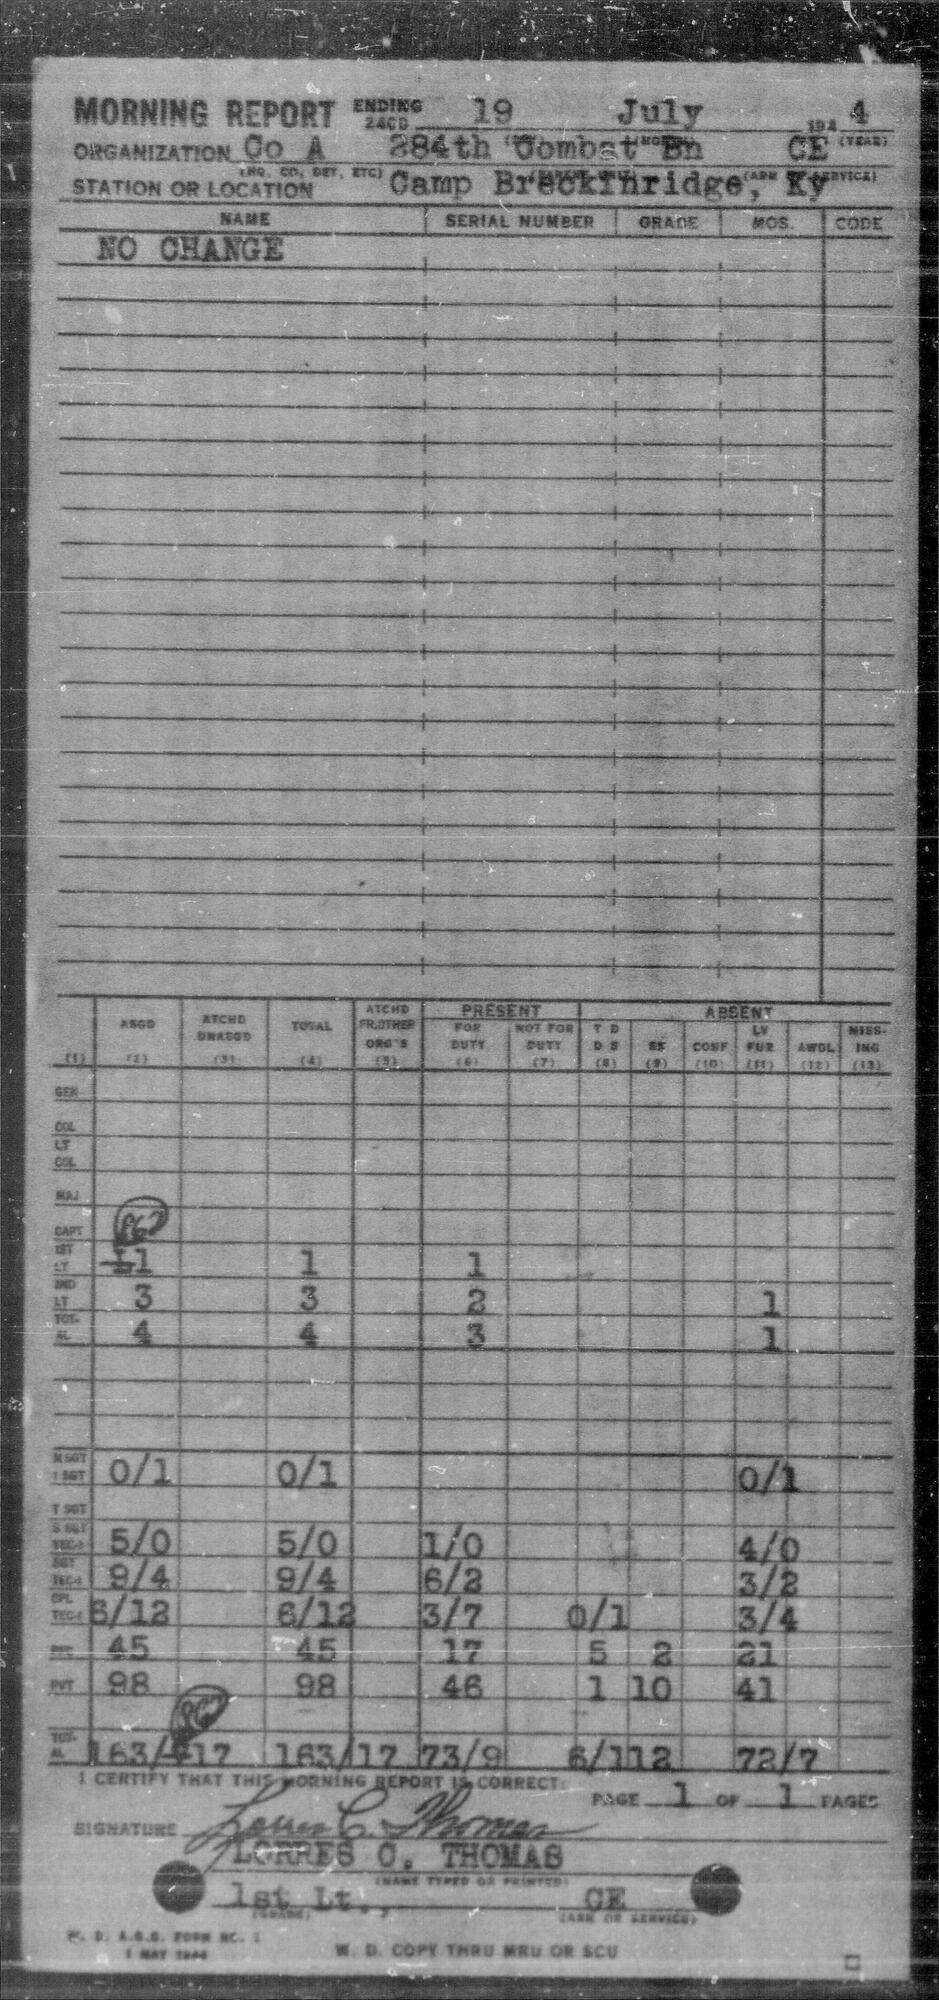 MORNING REPORT ENDING 2400 19 July 194 4
ORGANIZATION Co A 284th Combat Bn CE (YEAR)
(HQ, CO, DET, ETC)
STATION OR LOCATION Camp Breckinridge, Ky
NAME SERIAL NUMBER GRADE MOS. CODE
NO CHANGE
PRESENT ABSENT
ASGD ATCHD UNASGD TOTAL ATCHD FR.OTHER ORG'S FOR DUTY NOT FOR DUTY T D D S SK CONF LV FUR AWOL MISSING
(1) (2) (3) (4) (5) (6) (7) (8) (9) (10) (11) (12) (13)
GEN
COL
LT COL
MAJ
CAPT
1ST LT 1 1 1
2ND LT 3 3 2 1
TOTAL 4 4 3 1
M SGT 1 SGT 0/1 0/1 0/1
T SGT
S SGT TEC-3 5/0 5/0 1/0 4/0
SGT TEC-4 9/4 9/4 6/2 3/2
CPL TEC-5 6/12 6/12 3/7 0/1 3/4
PFC 45 45 17 5 2 21
PVT 98 98 46 1 10 41
TOTAL 163/17 163/17 73/9 6/1 12 72/7
I CERTIFY THAT THIS MORNING REPORT IS CORRECT:
PAGE 1 OF 1 PAGES
SIGNATURE Lorres C. Thomas
LORRES C. THOMAS
(NAME TYPED OR PRINTED)
1st Lt., CE
(GRADE) (ARM OR SERVICE)
W. D. A.G.O. FORM NO. 1
1 MAY 1944
W. D. COPY THRU MRU OR SCU